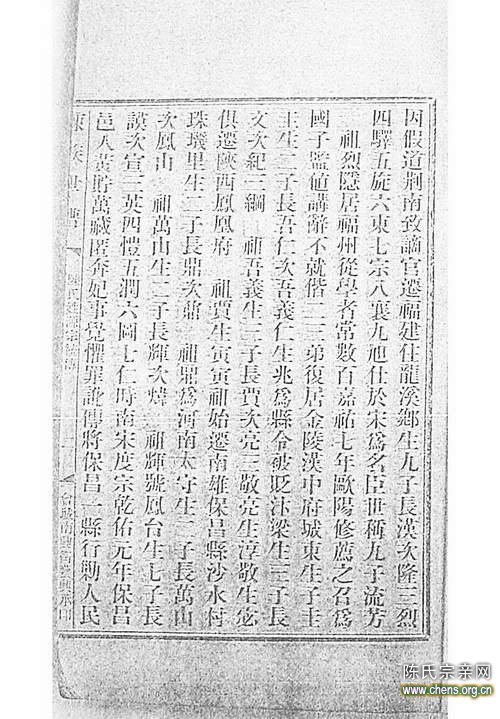 因假道荆南致謫官遷福建仕龍溪鄉生九子長漢次隆三烈
四驛五旋六東七宗八襄九旭仕於宋爲名臣世稱九子流芳
三祖烈隱居福州從學者常數百嘉祐七年歐陽修薦之召爲
國子監値講辭不就偕二三弟復居金陵漢中府城東生子主
主生二子長吾仁次吾義仁生兆爲縣令破貶汴梁生三子長
文次紀三綱 祖吾義生三子長賈次亮三敬亮生淳敬生宓
俱遷陝西鳳凰府 祖賈生寅寅祖始遷南雄保昌縣沙水村
珠璣里生二子長鼎次鼐 祖鼎爲河南太守生二子長萬山
次鳳山 祖萬山生二子長輝次煒 祖輝號鳳台生七子長
謨次宣三英四愷五潤六圖七仁時南宋度宗乾佑元年保昌
邑人黃貯萬藏匿奔妃事覺懼罪訛傳將保昌一縣行勦人民
陳氏宗亲网
www.chens.org.cn